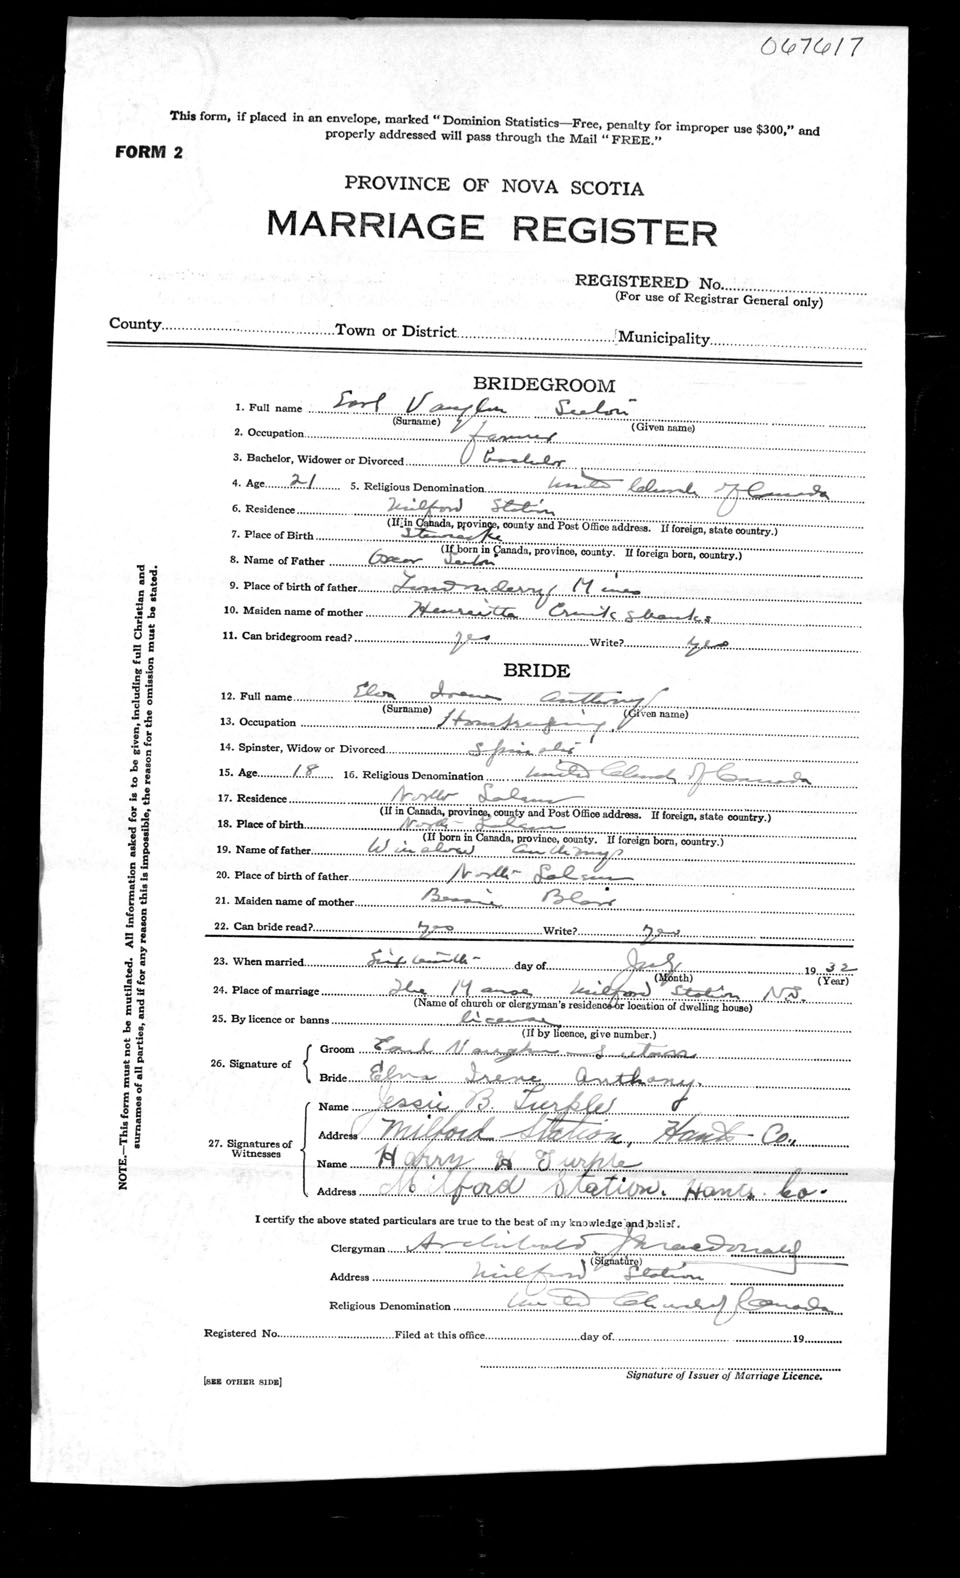 067617
This form, if placed in an envelope, marked "Dominion Statistics—Free, penalty for improper use $300," and
properly addressed will pass through the Mail "FREE."
FORM 2
PROVINCE OF NOVA SCOTIA
MARRIAGE REGISTER
REGISTERED No.
(For use of Registrar General only)
County Town or District Municipality
BRIDEGROOM
1. Full name Earl Vaughn
(Surname) (Given name)
2. Occupation farmer
3. Bachelor, Widower or Divorced Bachelor
4. Age 21 5. Religious Denomination United Church of Canada
6. Residence Milford Station
(If in Canada, province, county and Post Office address. If foreign, state country.)
7. Place of Birth Stewiacke
(If born in Canada, province, county. If foreign born, country.)
8. Name of Father Oscar
9. Place of birth of father Londonderry Mines
10. Maiden name of mother Henrietta
11. Can bridegroom read? yes Write? yes
BRIDE
12. Full name Elva Irene Anthony
(Surname) (Given name)
13. Occupation Housekeeping
14. Spinster, Widow or Divorced Spinster
15. Age 18 16. Religious Denomination United Church of Canada
17. Residence North Salem
(If in Canada, province, county and Post Office address. If foreign, state country.)
18. Place of birth North Salem
(If born in Canada, province, county. If foreign born, country.)
19. Name of father Winslow Anthony
20. Place of birth of father North Salem
21. Maiden name of mother Bessie Blair
22. Can bride read? yes Write? yes
23. When married day of July 1932
(Month) (Year)
24. Place of marriage The Manse Milford Station N.S.
(Name of church or clergyman's residence or location of dwelling house)
25. By licence or banns license
(If by licence, give number.)
26. Signature of
Groom Earl Vaughn
Bride Elva Irene Anthony.
27. Signatures of Witnesses
Name Jessie B. Turple
Address Milford Station, Hants Co.,
Name Harry H Turple
Address Milford Station. Hants. Co.
I certify the above stated particulars are true to the best of my knowledge and belief.
Clergyman Archibald J Macdonald
(Signature)
Address Milford Station
Religious Denomination United Church of Canada
Registered No. Filed at this office day of 19
Signature of Issuer of Marriage Licence.
[SEE OTHER SIDE]
NOTE.—This form must not be mutilated. All information asked for is to be given, including full Christian and
surnames of all parties, and if for any reason this is impossible, the reason for the omission must be stated.